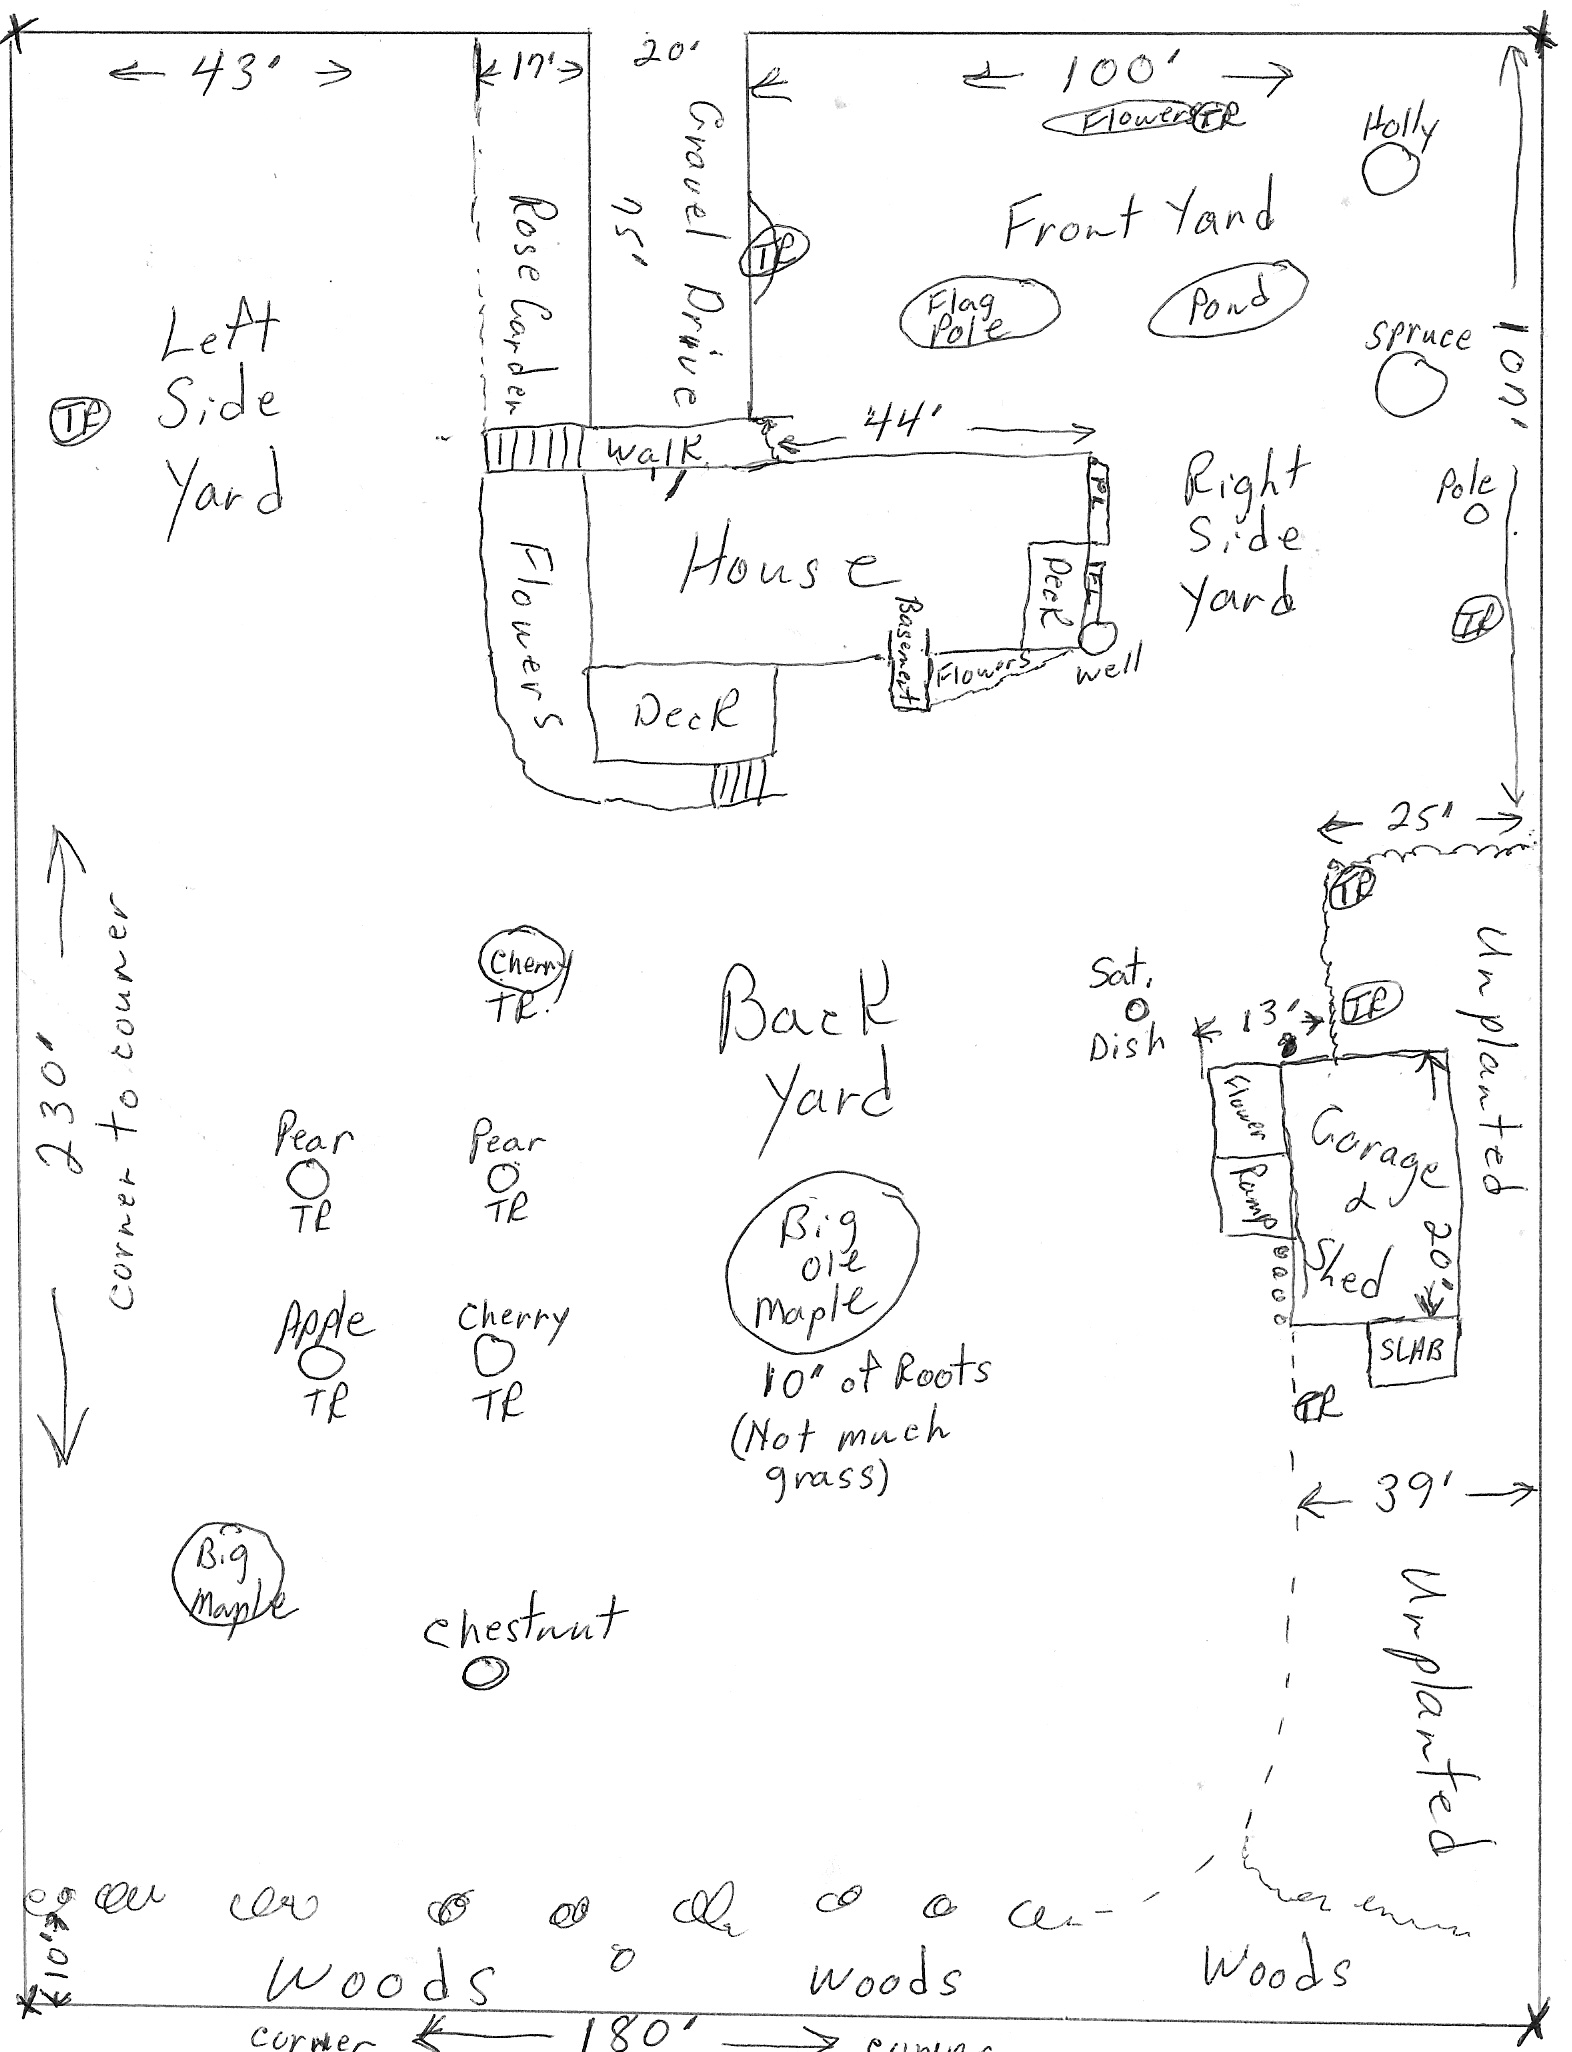 43'
17'
20'
100'
Flowers TR
Holly
Gravel Drive
75'
Rose Garden
TR
Front Yard
Flag
Pole
Pond
Spruce
107'
Left
Side
Yard
TR
44'
Walk
Right
Side
Yard
Pole
TR
House
Flowers
Deck
FL
FL
Basement
Flowers
well
Deck
25'
TR
Unplanted
230'
corner to courner
Cherry
TR.
Back
Yard
Sat.
Dish
13'
TR
Flower
Ramp
Garage
&
Shed
20'
SLAB
TR
Pear
TR
Pear
TR
Apple
TR
Cherry
TR
Big
Ole
Maple
10" of Roots
(Not much
grass)
39'
Unplanted
Big
Maple
Chestnut
10'
Woods
Woods
Woods
corner
180'